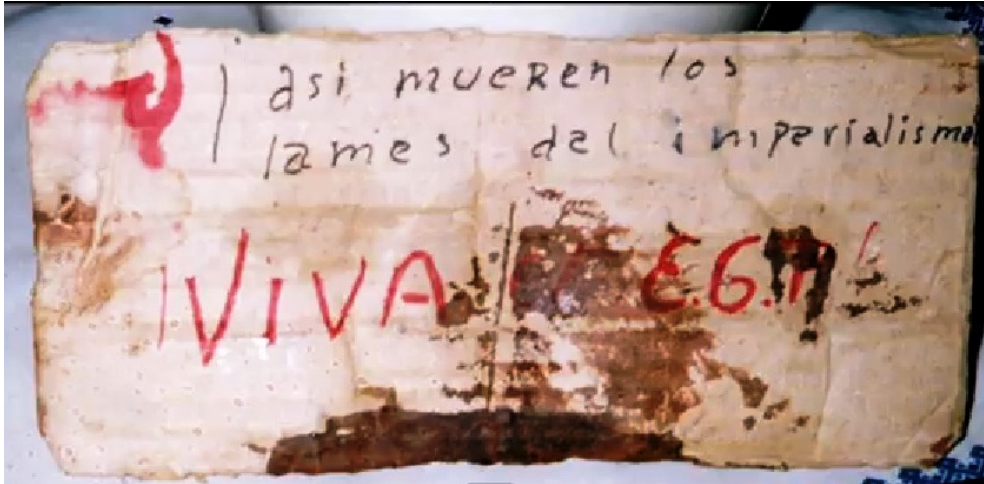 ¡asi mueren los
lames del imperialismo
¡VIVA EL E.G.P!